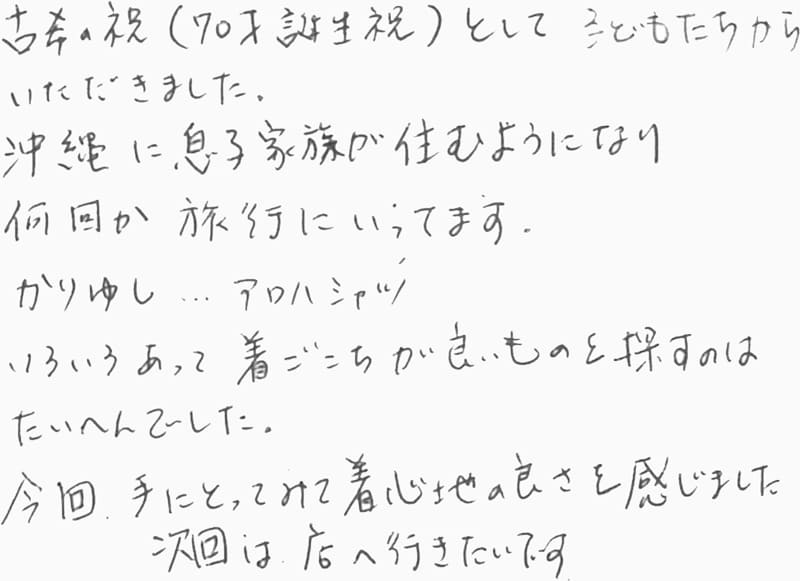 古希の祝(70才誕生祝)として 子どもたちから
いただきました.
沖縄に息子家族が住むようになり
何回か 旅行にいってます.
かりゆし … アロハシャツ
いろいろあって 着ごこちが良いものを探すのは
たいへんでした.
今回. 手にとってみて着心地の良さを感じました
次回は. 店へ行きたいです